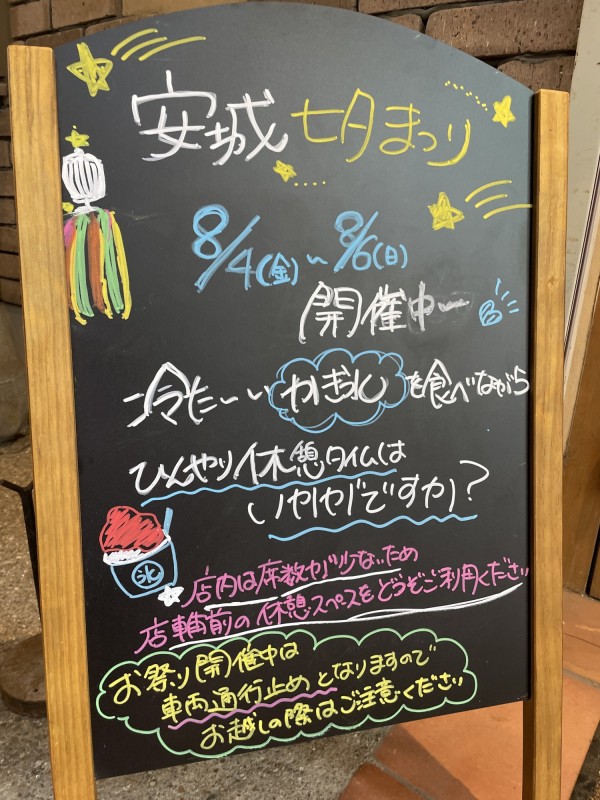 安城 七夕まつり
8/4(金)〜8/6(日)
開催中ー
冷たーいかき氷を食べながら
ひんやり休憩タイムは
いかがですか？
氷
店内は席数が少ないため
店舗前の休憩スペースをどうぞご利用ください
お祭り開催中は
車両通行止めとなりますので
お越しの際はご注意ください